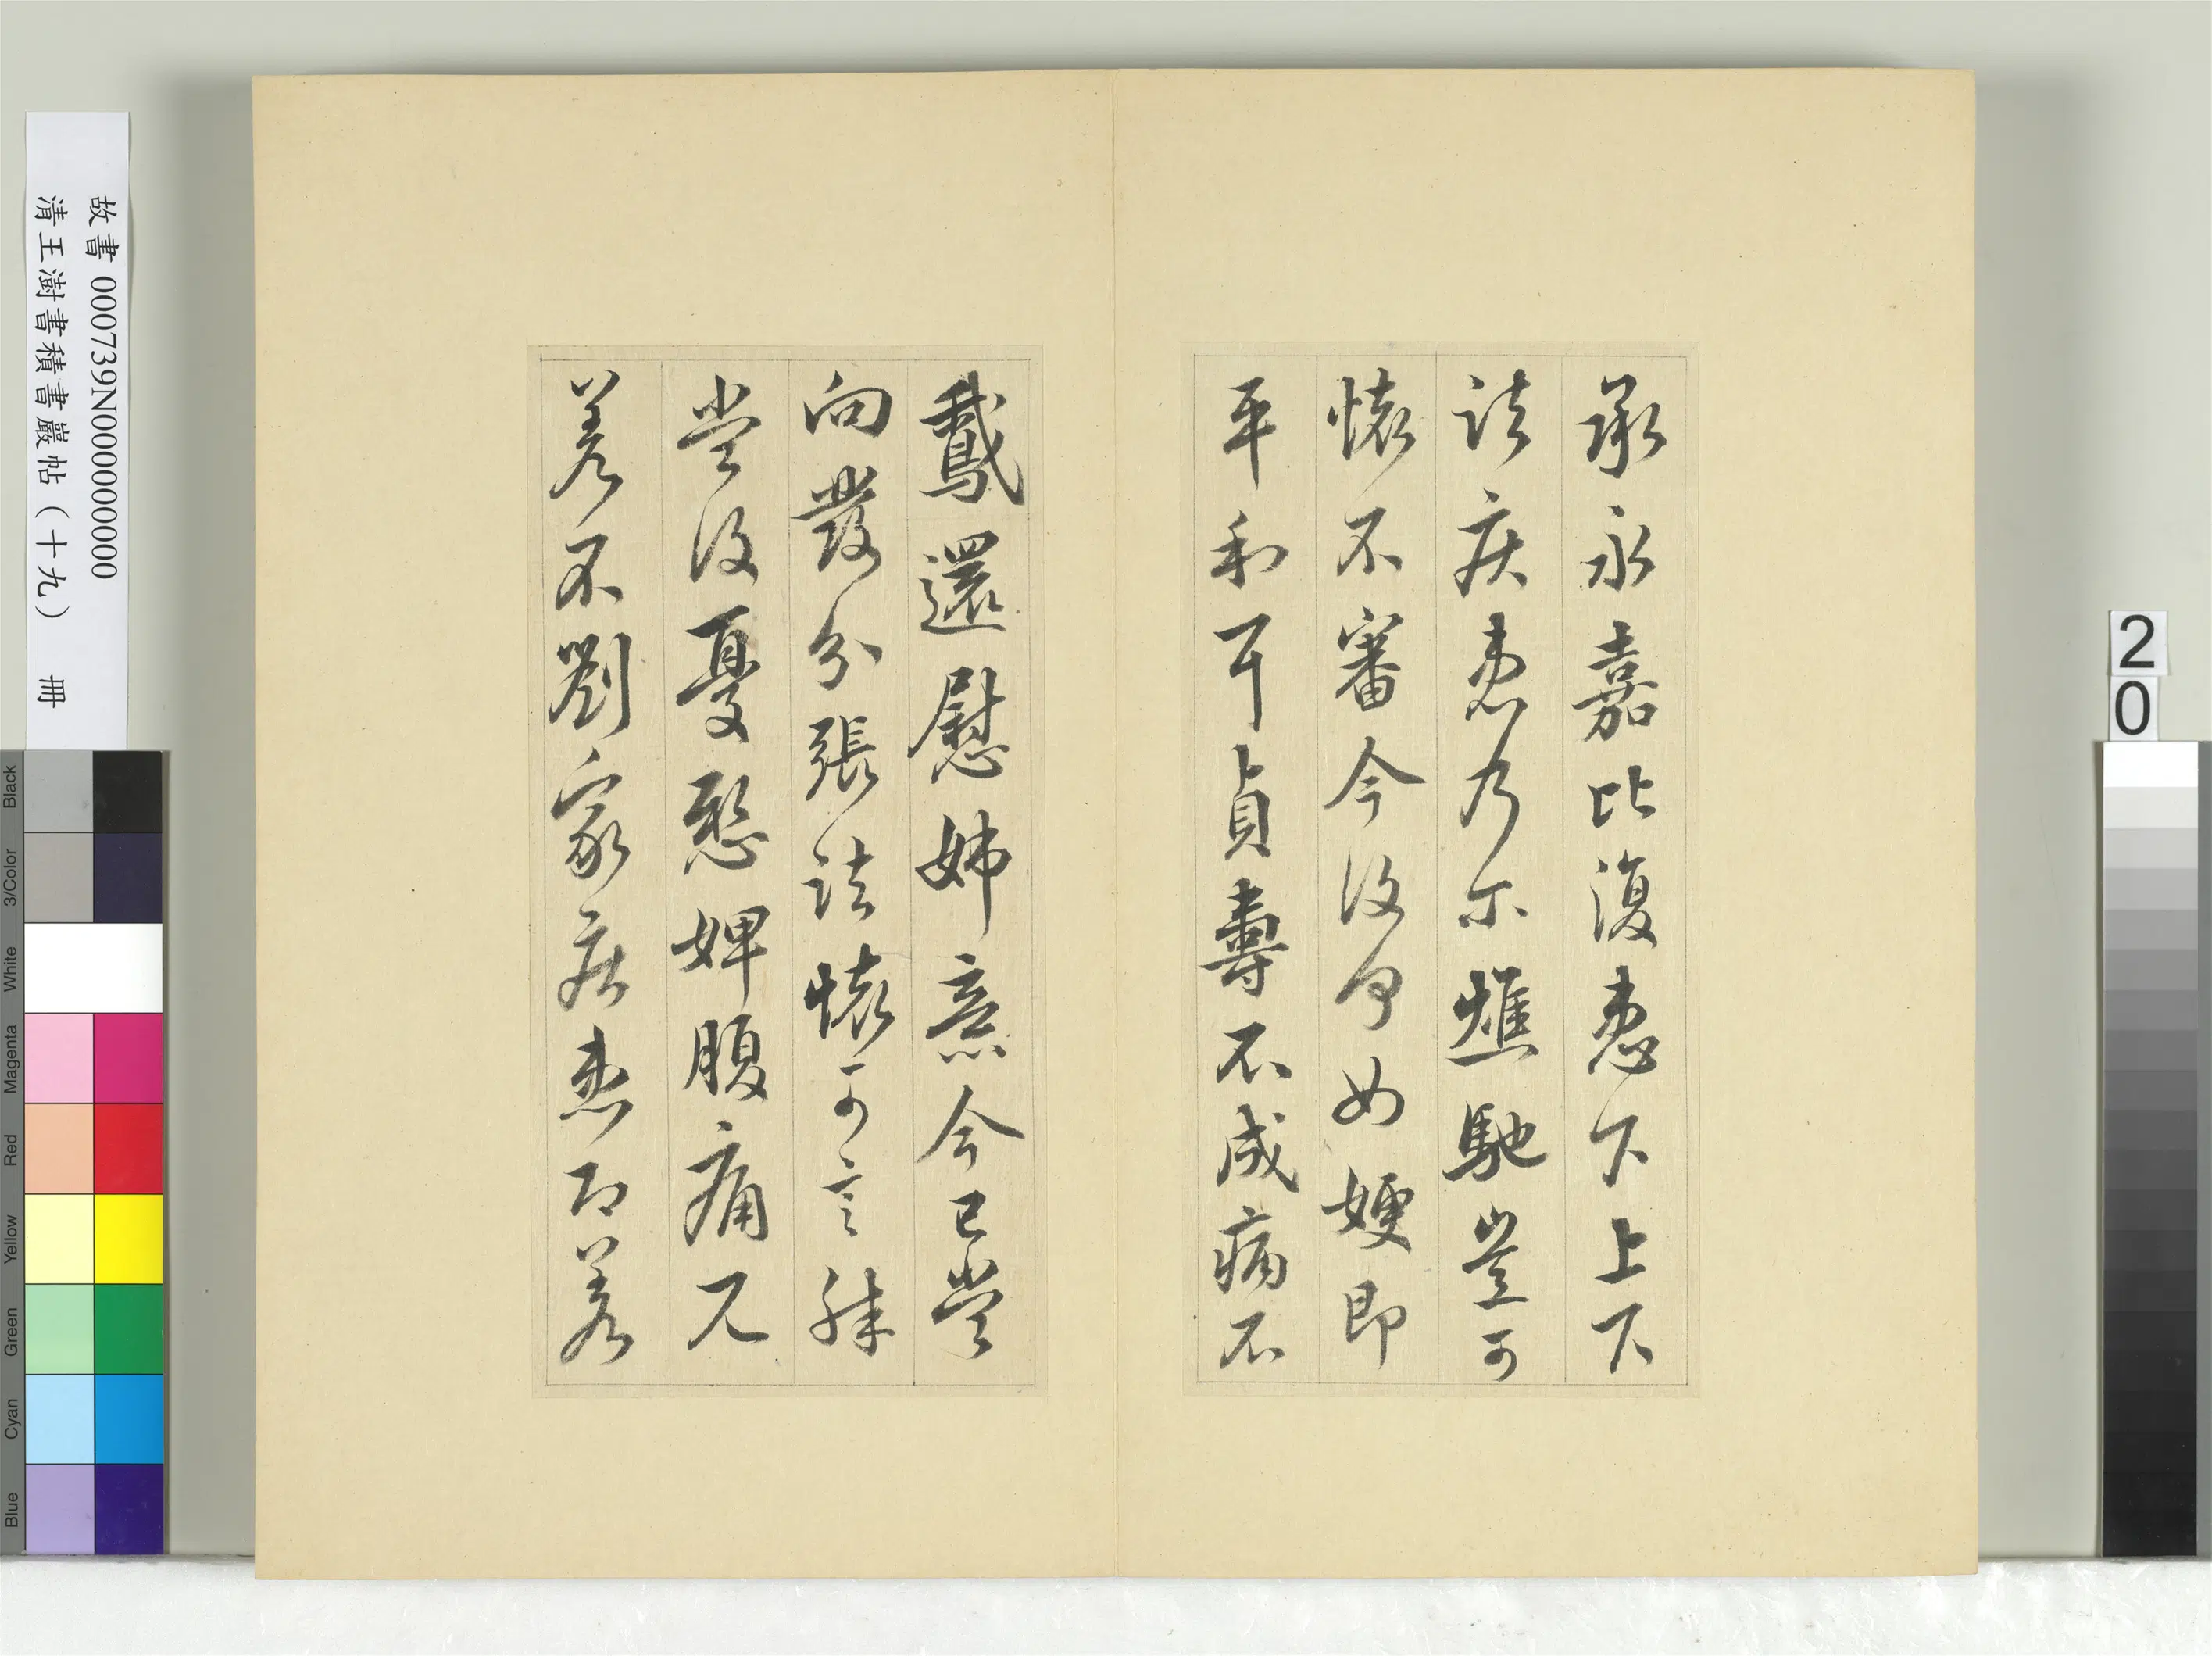 承永嘉比復患下上下
諸疾患乃尒燋馳豈可
懷不審今復何如嫂即
平和耳貞壽不成病不
鵞還慰姊意今已當
向發分張諸懷可言殊
當復憂愍婢腹痛兄
差不劉家疾患即差
故書 000739N000000000
清王澍書積書巖帖（十九） 冊
20
Black
3/Color
White
Magenta
Red
Yellow
Green
Cyan
Blue